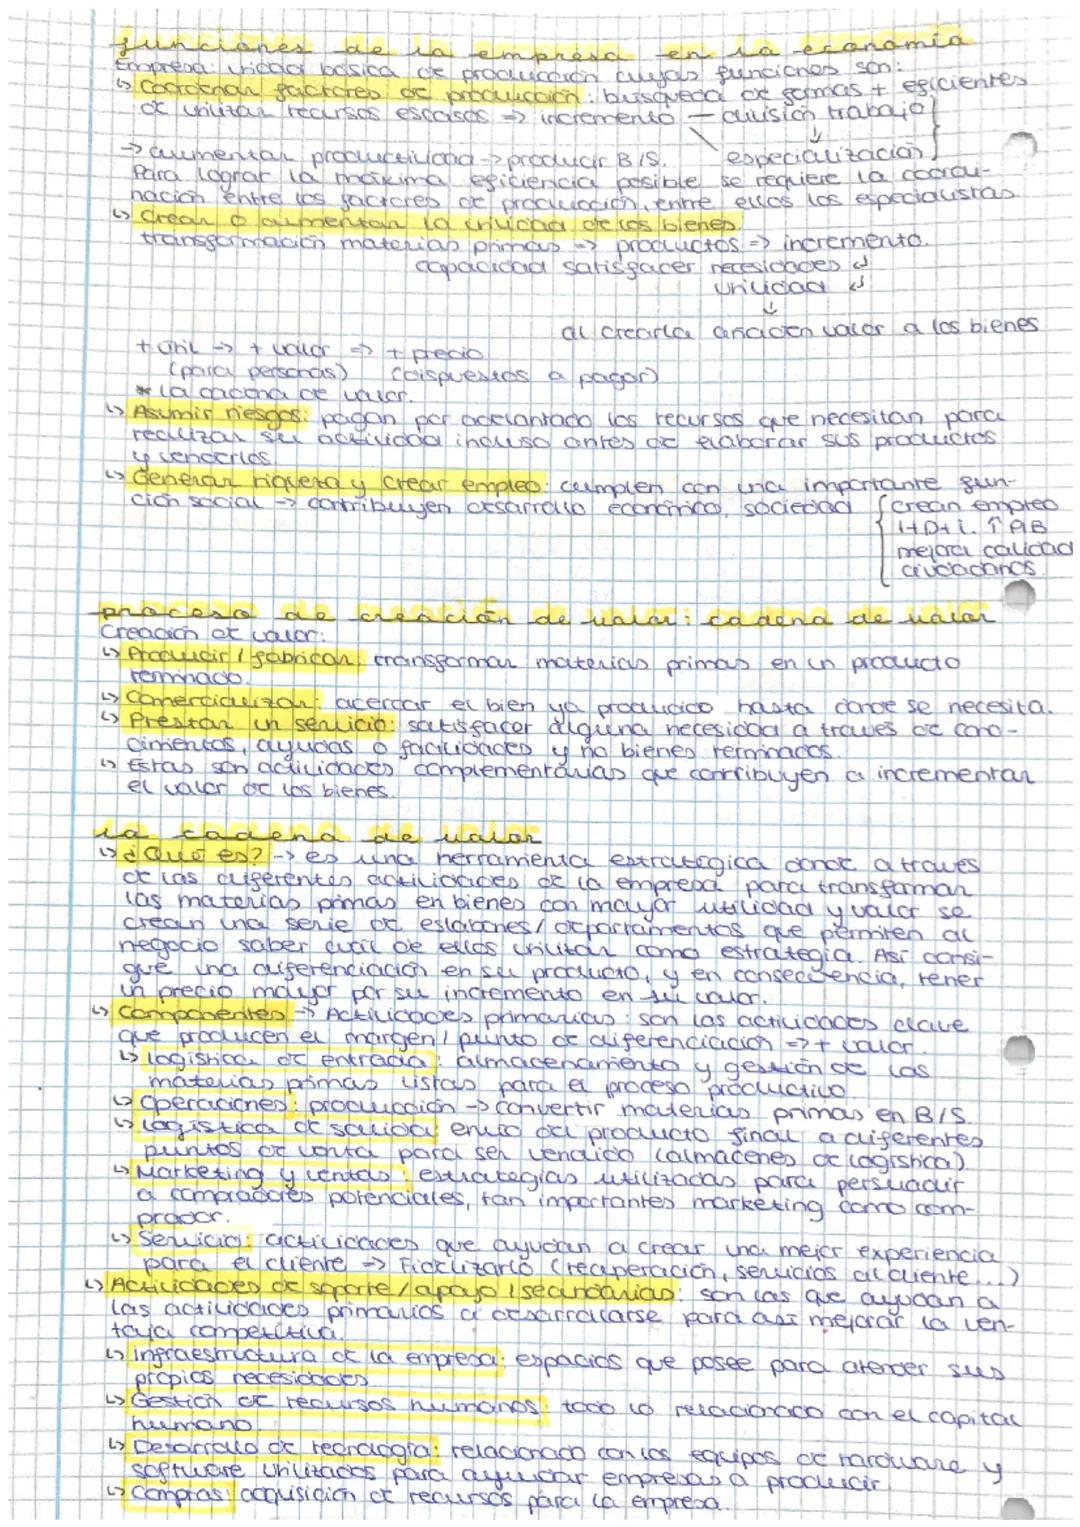 funciones de la empresa en la economía
Empresa: unidad básica de producción cuyas funciones son:
↳ Coordinar factores de producción: búsqueda de formas + eficientes
de utilizar recursos escasos => incremento — división trabajo
→ aumentar productividad -> producir B/S. especialización
Para lograr la máxima eficiencia posible se requiere la coordi-
nación entre los factores de producción, entre ellos los especialistas
↳ Crear o aumentar la utilidad de los bienes
transformación materias primas => productos => incremento
capacidad satisfacer necesidades
utilidad
al crearla añaden valor a los bienes
+ útil -> + valor => + precio
(para personas) (dispuestos a pagar)
* la cadena de valor.
↳ Asumir riesgos: pagan por adelantado los recursos que necesitan para
realizar su actividad incluso antes de elaborar sus productos
y venderlos
↳ Generar riqueza y crear empleo: cumplen con una importante fun-
ción social -> contribuyen desarrollo económico, sociedad { crean empleo
I+D+i. ↑ PIB
mejora calidad
ciudadanos
proceso de creación de valor: cadena de valor
Creación de valor:
↳ Producir / fabricar: transformar materias primas en un producto
terminado.
↳ Comercializar: acercar el bien ya producido hasta donde se necesita.
↳ Prestar un servicio: satisfacer alguna necesidad a través de cono-
cimientos, ayudas o facilidades y no bienes terminados.
↳ Estas son actividades complementarias que contribuyen a incrementar
el valor de los bienes.
la cadena de valor
↳ ¿Qué es? -> es una herramienta estratégica donde a través
de las diferentes actividades de la empresa para transformar
las materias primas en bienes con mayor utilidad y valor se
crean una serie de eslabones/departamentos que permiten al
negocio saber cuál de ellos utilizar como estrategia. Así consi-
gue una diferenciación en su producto, y en consecuencia, tener
un precio mayor por su incremento en su valor.
↳ Componentes -> Actividades primarias: son las actividades clave
que producen el margen / punto de diferenciación => + valor.
↳ logística de entrada: almacenamiento y gestión de las
materias primas listas para el proceso productivo
↳ Operaciones: producción -> convertir materias primas en B/S.
↳ logística de salida: envío del producto final a diferentes
puntos de venta para ser vendido (almacenes de logística).
↳ Marketing y ventas: estrategias utilizadas para persuadir
a compradores potenciales, tan importantes marketing como com-
prador.
↳ Servicio: actividades que ayudan a crear una mejor experiencia
para el cliente -> Fidelizarlo (recuperación, servicios al cliente...)
↳ Actividades de soporte / apoyo / secundarias: son las que ayudan a
las actividades primarias a desarrollarse para así mejorar la ven-
taja competitiva.
↳ infraestructura de la empresa: espacios que posee para atender sus
propias necesidades
↳ Gestión de recursos humanos: todo lo relacionado con el capital
humano.
↳ Desarrollo de tecnología: relacionado con los equipos de hardware y
software utilizados para ayudar empresas a producir
↳ Compras: adquisición de recursos para la empresa.